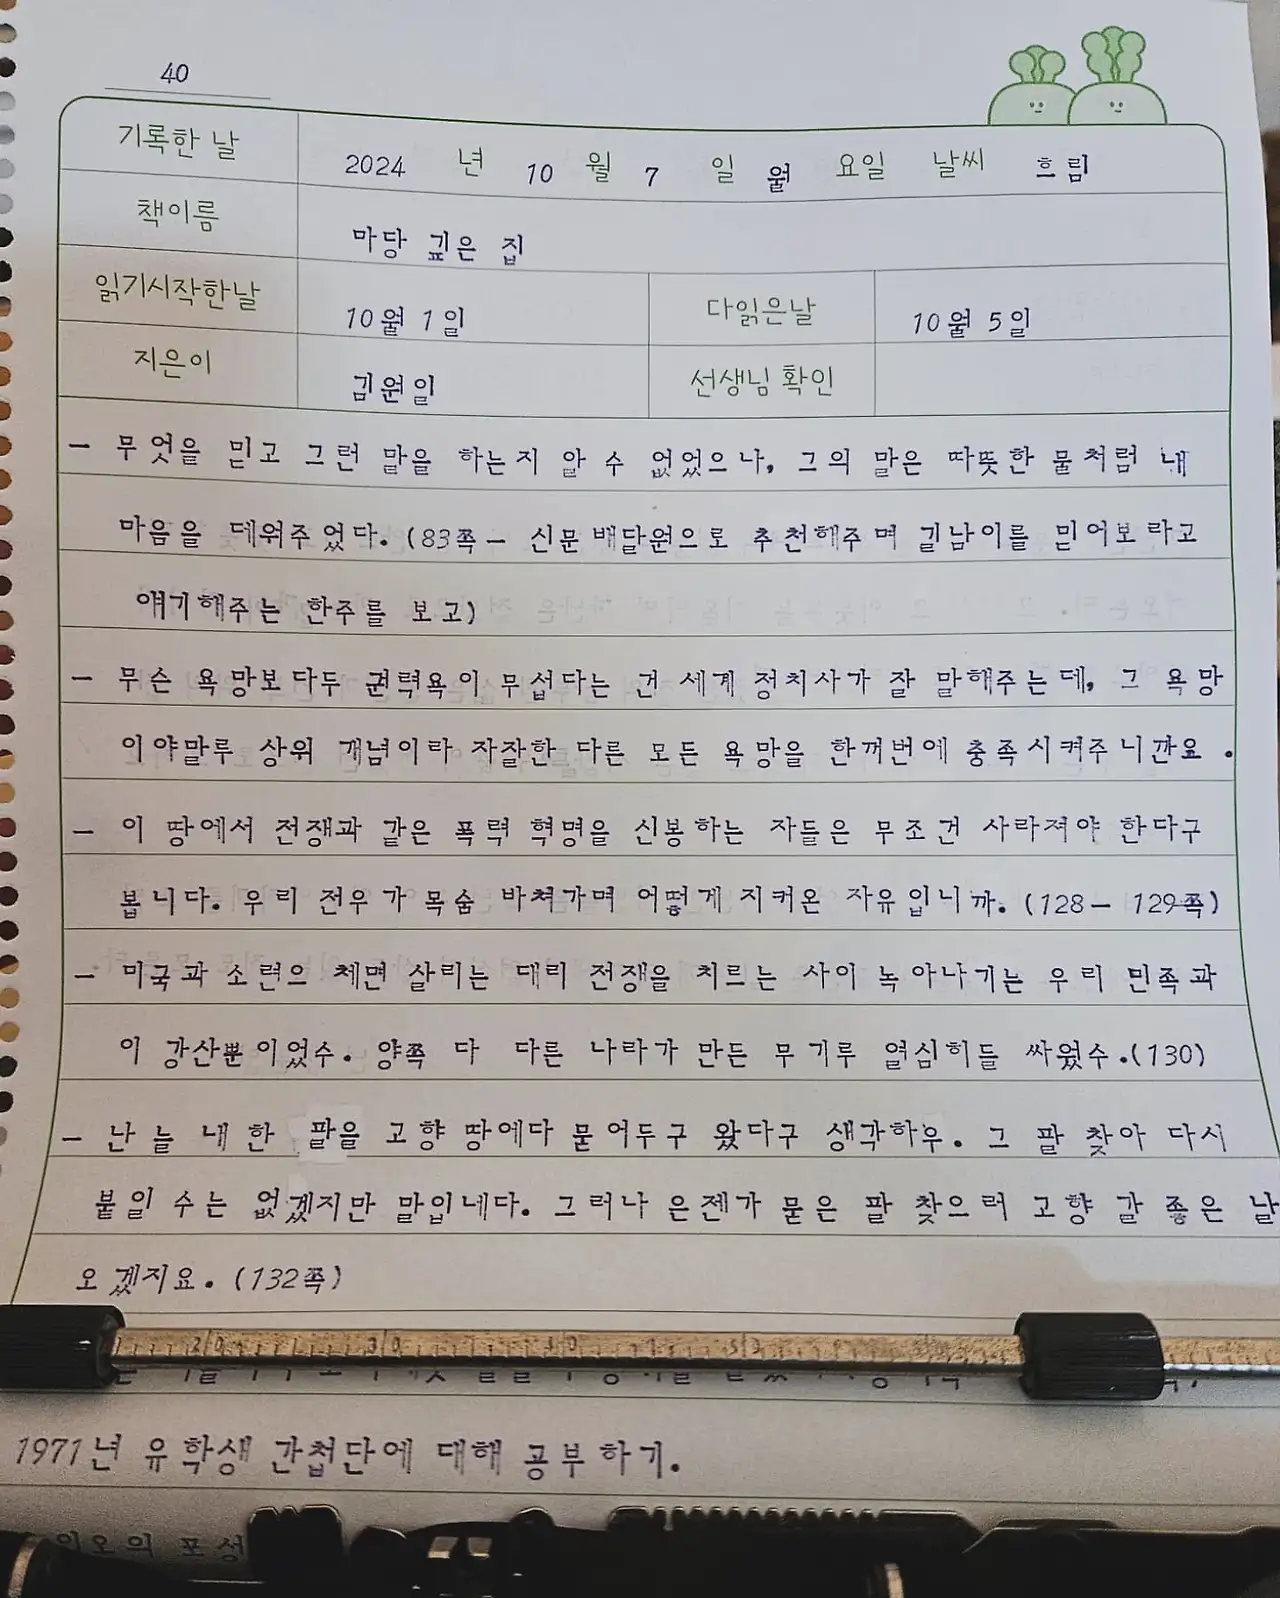 40
기록한 날 2024 년 10 월 7 일 월 요일 날씨 흐림
책이름 마당 깊은 집
읽기시작한날 10월 1일 다읽은날 10월 5일
지은이 김원일 선생님 확인
- 무엇을 믿고 그런 말을 하는지 알 수 없었으나, 그의 말은 따뜻한 물처럼 내
마음을 데워주었다. (83쪽 - 신문배달원으로 추천해주며 길남이를 믿어보라고
얘기해주는 한주를 보고)
- 무슨 욕망보다두 권력욕이 무섭다는 건 세계 정치사가 잘 말해주는데, 그 욕망
이야말루 상위 개념이라 자잘한 다른 모든 욕망을 한꺼번에 충족시켜주니깐요.
- 이 땅에서 전쟁과 같은 폭력 혁명을 신봉하는 자들은 무조건 사라져야 한다구
봅니다. 우리 전우가 목숨 바쳐가며 어떻게 지켜온 자유입니까. (128 - 129쪽)
- 미국과 소련으 체면 살리는 대리 전쟁을 치르는 사이 녹아나기는 우리 민족과
이 강산뿐이었수. 양쪽 다 다른 나라가 만든 무기루 열심히들 싸웠수.(130)
- 난 늘 내 한 팔을 고향 땅에다 묻어두구 왔다구 생각하우. 그 팔 찾아 다시
붙일 수는 없겠지만 말입네다. 그러나 은젠가 묻은 팔 찾으러 고향 갈 좋은 날
오겠지요. (132쪽)
1971년 유학생 간첩단에 대해 공부하기.
포성